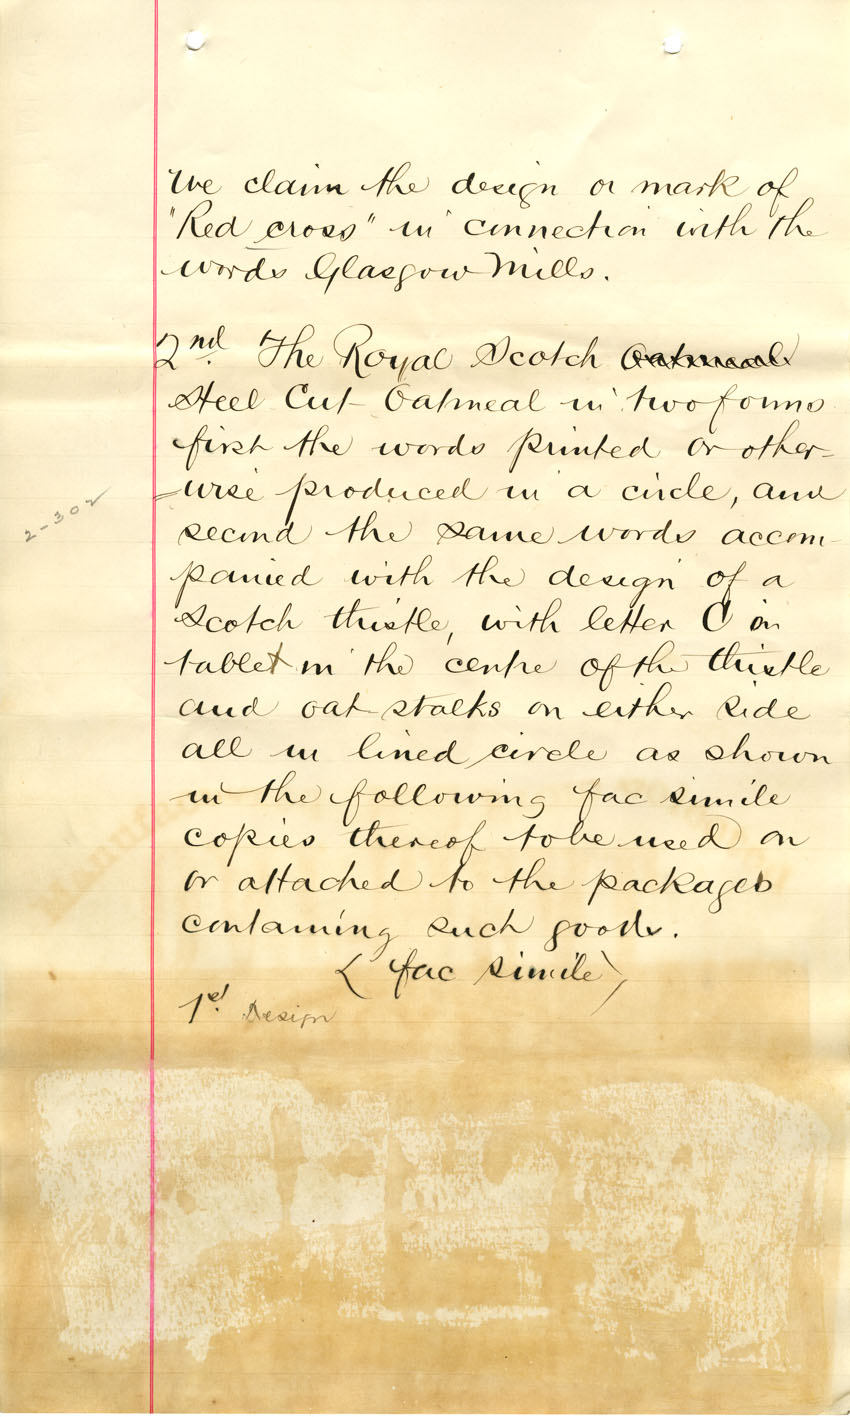 We claim the design or mark of
"Red cross" in connection with the
words Glasgow Mills.
2nd. The Royal Scotch Oatmeal
Steel Cut Oatmeal in two forms
first the words printed or other-
wise produced in a circle, and
second the same words accom-
panied with the design of a
Scotch thistle, with letter C on
tablet in the centre of the thistle
and oat stalks on either side
all in lined circle as shown
in the following fac simile
copies thereof to be used on
or attached to the packages
containing such goods.
(fac simile)
1st. Design
2-302